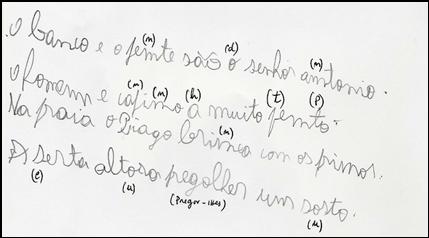 O banco e o femte são o senhor amtonio.
(m) (d) (m)
O homem e cafimo a muito femto.
(m) (m) (h) (t) (p)
Na praia o Tiago brimca com os primos.
(m)
A serta altosa pegolher um sosto.
(c) (u) (Pregar-lhes) (u)